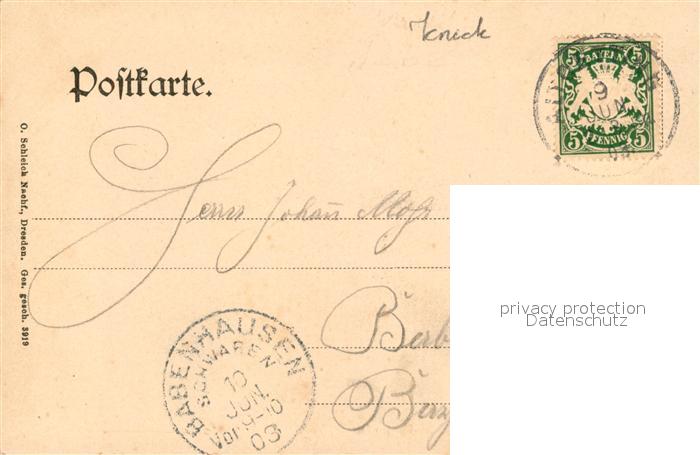 Knick
5 BAYERN 5
5 PFENNIG 5
9
JUN
03
Postkarte.
O. Schleich Nachf., Dresden. Ges. gesch. 3919
Herrn Johann
privacy protection
Datenschutz
BABENHAUSEN
SCHWABEN
10
JUN.
Vor 9-10
03